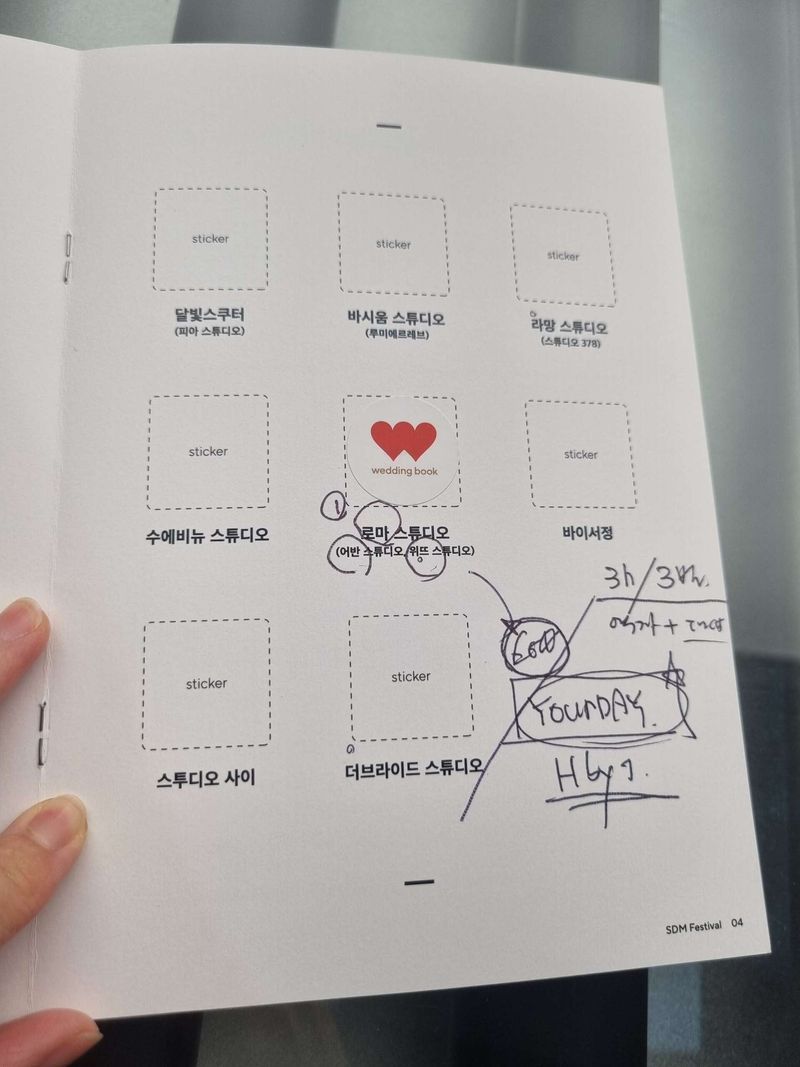 sticker
sticker
sticker
달빛스쿠터
(피아 스튜디오)
바시움 스튜디오
(루미에르레브)
라망 스튜디오
(스튜디오 378)
sticker
wedding book
sticker
수에비뉴 스튜디오
①
로마 스튜디오
(어반 스튜디오, 위뜨 스튜디오)
바이서정
3h
YourDAY.
sticker
sticker
스투디오 사이
더브라이드 스튜디오
SDM Festival 04